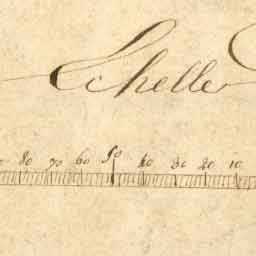 Echelle
80 70 60 50 40 30 20 10